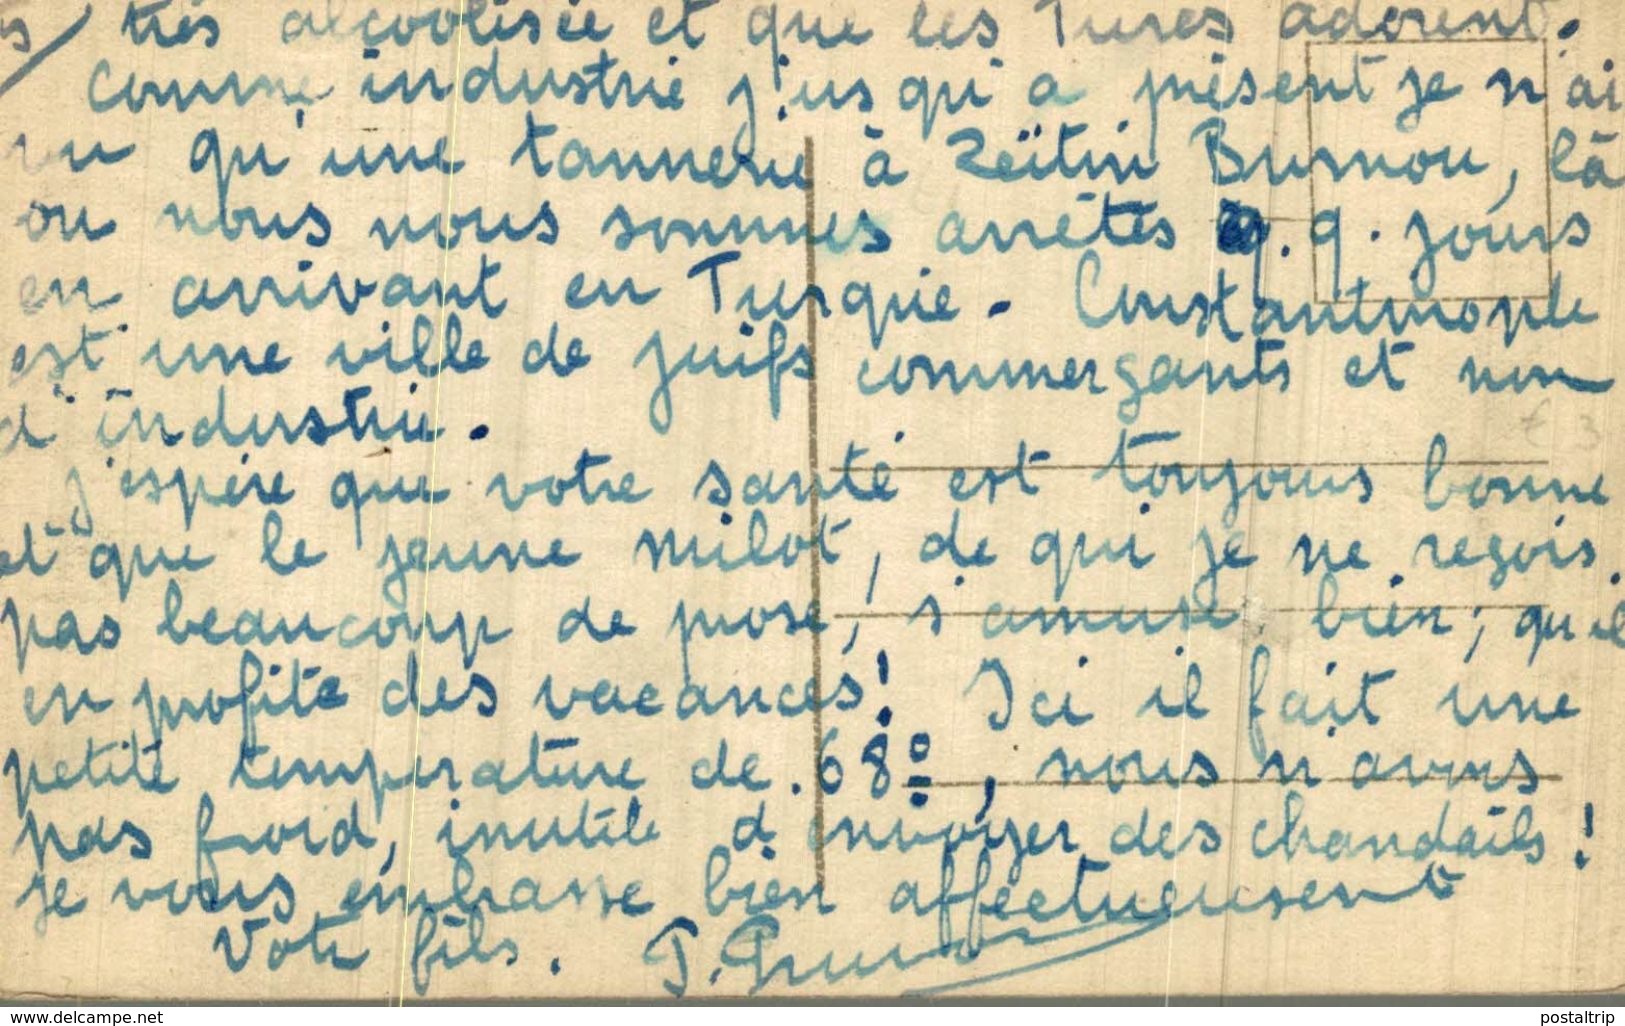 très alcoolisée et que les Turcs adorent.
Comme industrie j'usqu'a présent je n'ai
vu qu'une tannerie à Zeïtin Burnou, là
ou nous nous sommes arrêtés q. q. jours
en arrivant en Turquie. Constantinople
est une ville de juifs commerçants et non
d'industrie.
j'espère que votre santé est toujours bonne
et que le jeune Milot, de qui je ne reçois
pas beaucoup de prose, s'amuse bien; qu'il
en profite des vacances! Ici il fait une
petite température de 68°, nous n'avons
pas froid, inutile d'envoyer des chandails!
je vous embrasse bien affectueusement
Votre fils.
www.delcampe.net
postaltrip